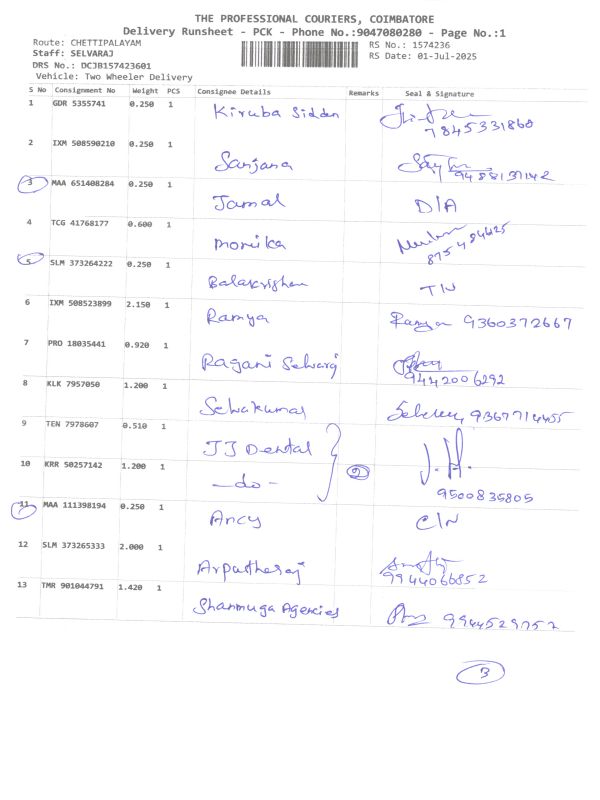 THE PROFESSIONAL COURIERS, COIMBATORE
Delivery Runsheet - PCK - Phone No.:9047080280 - Page No.:1
Route: CHETTIPALAYAM RS No.: 1574236
Staff: SELVARAJ RS Date: 01-Jul-2025
DRS No.: DCJB157423601
Vehicle: Two Wheeler Delivery
S No Consignment No Weight PCS Consignee Details Remarks Seal & Signature
1 GDR 5355741 0.250 1 Kiruba Siddan
7845331860
2 IXM 508590210 0.250 1 Sanjana
9488137142
3 MAA 651408284 0.250 1 Jamal D/A
4 TCG 41768177 0.600 1 monika
5 SLM 373264222 0.250 1 Balakrishan
6 IXM 508523899 2.150 1 Ramya Ramya 9360372667
7 PRO 18035441 0.920 1 Ragani Selvaraj
9442006292
8 KLK 7957050 1.200 1 Selvakumar 9367714455
9 TEN 7978607 0.510 1 JJ Dental
10 KRR 50257142 1.200 1 -do- 2
9500835805
11 MAA 111398194 0.250 1 Ancy
12 SLM 373265333 2.000 1 Arputharaj
9944066852
13 TMR 901044791 1.420 1 Shanmuga Agencies 9944529752
3